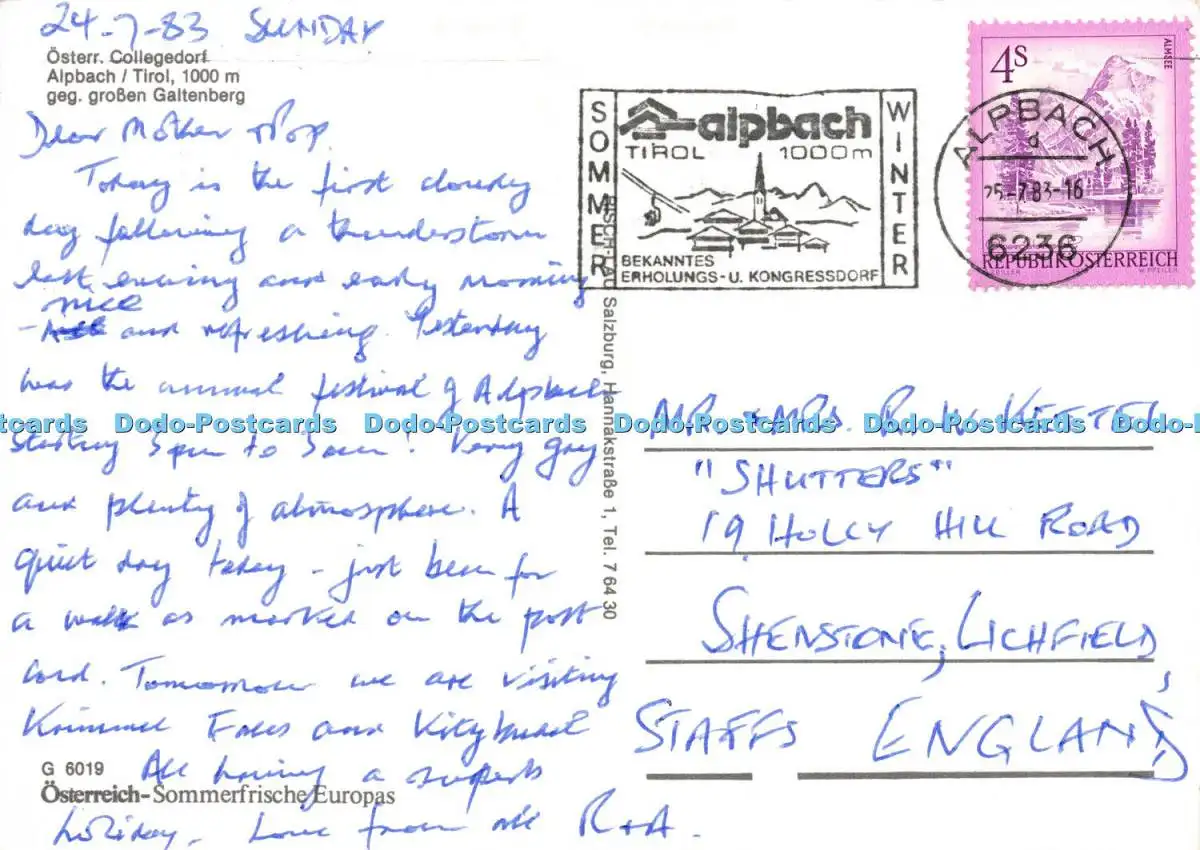 24-7-83 SUNDAY
Österr. Collegedorf
Alpbach / Tirol, 1000 m
geg. großen Galtenberg
Dear Mother + Pop.
Today is the first cloudy
day following a thunderstorm
last evening and early morning
nice
- and refreshing. Yesterday
was the annual festival of Alpbach
starting 5pm to 3am! Very gay
and plenty of atmosphere. A
quiet day today - just been for
a walk as marked on the post
card. Tomorrow we are visiting
Krimml Falls and Kitzbuhel
All having a superb
holiday. Love from all R+A.
G 6019
Österreich-Sommerfrische Europas
Salzburg, Hannakstraße 1, Tel. 7 64 30
SOMMER
alpbach
TIROL 1000m
BEKANNTES
ERHOLUNGS- U. KONGRESSDORF
WINTER
4S
ALMSEE
ALPBACH
d
25.-7.83-16
6236
REPUBLIK ÖSTERREICH
MR. + MRS. R. W. KETTEL
"SHUTTERS"
19 HOLLY HILL ROAD
SHENSTONE, LICHFIELD,
STAFFS ENGLAND
Dodo-Postcards Dodo-Postcards Dodo-Postcards Dodo-Postcards Dodo-Postcards